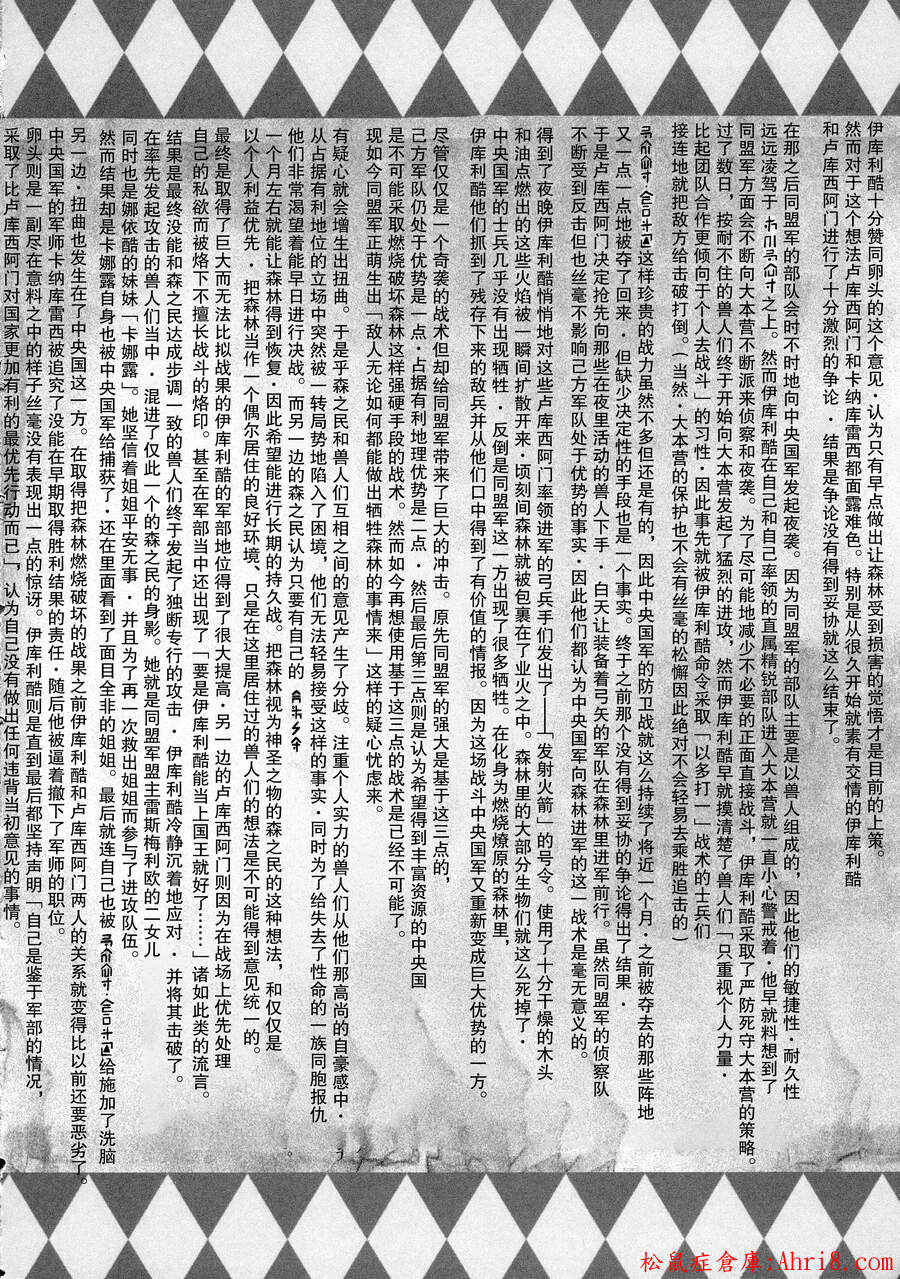 伊库利酷十分赞同卵头的这个意见·认为只有早点做出让森林受到损害的觉悟才是目前的上策。
然而对于这个想法卢库西阿门和卡纳库雷西都面露难色。特别是从很久开始就素有交情的伊库利酷
和卢库西阿门进行了十分激烈的争论·结果是争论没有得到妥协就这么结束了。
在那之后同盟军的部队会时不时地向中央国军发起夜袭。因为同盟军的部队主要是以兽人组成的，因此他们的敏捷性·耐久性
远远凌驾于之上。然而伊库利酷在自己和自己率领的直属精锐部队进入大本营就一直小心警戒着·他早就料想到了
同盟军方面会不断向大本营不断派来侦察和夜袭。为了尽可能地减少不必要的正面直接战斗，伊库利酷采取了严防死守大本营的策略。
过了数日，按耐不住的兽人们终于开始向大本营发起了猛烈的进攻，然而伊库利酷早就摸清楚了兽人们「只重视个人力量·
比起团队合作更倾向于个人去战斗」的习性·因此事先就被伊库利酷命令采取「以多打一」战术的士兵们
接连地就把敌方给击破打倒。(当然·大本营的保护也不会有丝毫的松懈因此绝对不会轻易去乘胜追击的)
这样珍贵的战力虽然不多但还是有的，因此中央国军的防卫战就这么持续了将近一个月·之前被夺去的那些阵地
又一点一点地被夺了回来·但缺少决定性的手段也是一个事实。终于之前那个没有得到妥协的争论得出了结果·
于是卢库西阿门决定抢先向那些在夜里活动的兽人下手·白天让装备着弓矢的军队在森林里进军前行。虽然同盟军的侦察队
不断受到反击但也丝毫不影响己方军队处于优势的事实·因此他们都认为中央国军向森林进军的这一战术是毫无意义的。
得到了夜晚伊库利酷悄悄地对这些卢库西阿门率领进军的弓兵手们发出了——「发射火箭」的号令。使用了十分干燥的木头
和油点燃出的这些火焰被一瞬间扩散开来·顷刻间森林就被包裹在了业火之中。森林里的大部分生物们就这么死掉了·
中央国军的士兵几乎没有出现牺牲·反倒是同盟军这一方出现了很多牺牲。在化身为燃烧燎原的森林里，
伊库利酷他们抓到了残存下来的敌兵并从他们口中得到了有价值的情报。因为这场战斗中央国军又重新变成巨大优势的一方。
尽管仅仅是一个奇袭的战术但却给同盟军带来了巨大的冲击。原先同盟军的强大是基于这三点的，
己方军队仍处于优势是一点·占据有利地理优势是二点·然后最后第三点则是认为希望得到丰富资源的中央国
是不可能采取燃烧破坏森林这样强硬手段的战术。然而如今再想使用基于这三点的战术是已经不可能了。
现如今同盟军正萌生出「敌人无论如何都能做出牺牲森林的事情来」这样的疑心忧虑来。
有疑心就会增生出扭曲。于是乎森之民和兽人们互相之间的意见产生了分歧。注重个人实力的兽人们从他们那高尚的自豪感中·
从占据有利地位的立场中突然被一转局势地陷入了困境，他们无法轻易接受这样的事实·同时为了给失去了性命的一族同胞报仇
他们非常渴望着能早日进行决战。而另一边的森之民认为只要有自己的
一个月左右就能让森林得到恢复·因此希望能进行长期的持久战。把森林视为神圣之物的森之民的这种想法，和仅仅是
以个人利益优先·把森林当作一个偶尔居住的良好环境、只是在这里居住过的兽人们的想法是不可能得到意见统一的。
最终是取得了巨大而无法比拟战果的伊库利酷的军部地位得到了很大提高·另一边的卢库西阿门则因为在战场上优先处理
自己的私欲而被烙下不擅长战斗的烙印。甚至在军部当中还出现了「要是伊库利酷能当上国王就好了……」诸如此类的流言。
结果是最终没能和森之民达成步调一致的兽人们终于发起了独断专行的攻击·伊库利酷冷静沉着地应对·并将其击破了。
在率先发起攻击的兽人们当中·混进了仅此一个的森之民的身影。她就是同盟军盟主雷斯梅利欧的二女儿
同时也是娜依酷的妹妹「卡娜露」。她坚信着姐姐平安无事·并且为了再一次救出姐姐而参与了进攻队伍。
然而结果却是卡娜露自身也被中央国军给捕获了·还在里面看到了面目全非的姐姐。最后就连自己也被给施加了洗脑
另一边·扭曲也发生在了中央国这一方。在取得把森林燃烧破坏的战果之前伊库利酷和卢库西阿门两人的关系就变得比以前还要恶劣了。
中央国军的军师卡纳库雷西被追究了没能在早期取得胜利结果的责任·随后他被逼着撤下了军师的职位。
卵头则是一副尽在意料之中的样子丝毫没有表现出一点的惊讶。伊库利酷则是直到最后都坚持声明「自己是鉴于军部的情况，
采取了比卢库西阿门对国家更加有利的最优先行动而已」，认为自己没有做出任何违背当初意见的事情。
松鼠症倉庫:Ahri8.com